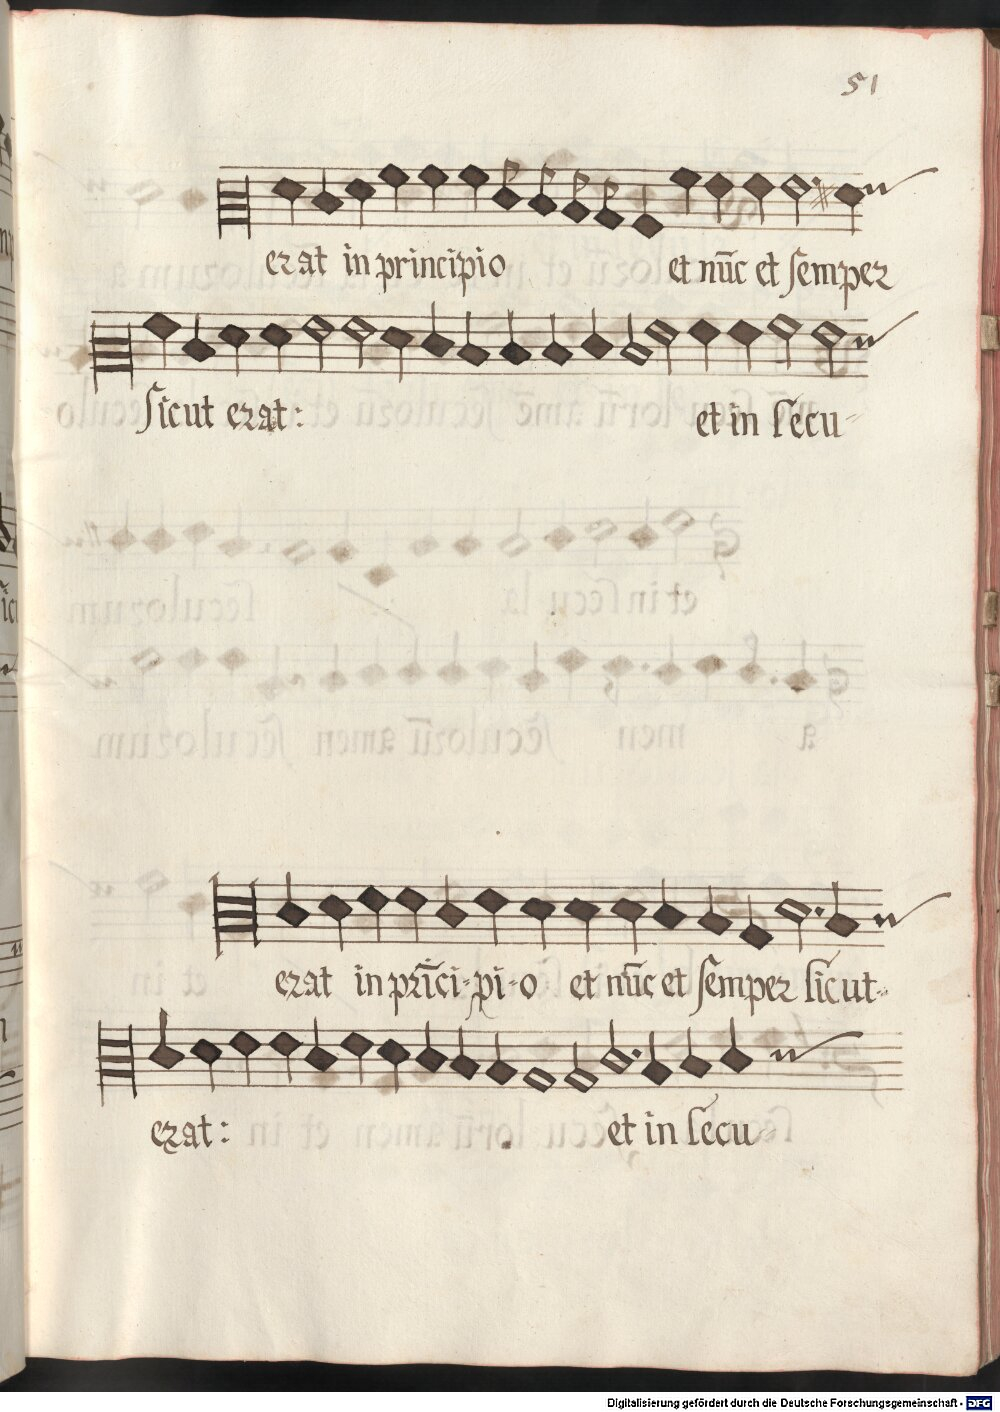 51
erat in principio et nūc et semper
sicut erat: et in secu-
erat in prīci-pi-o et nūc et semper sicut-
erat: et in secu
Digitalisierung gefördert durch die Deutsche Forschungsgemeinschaft - DFG